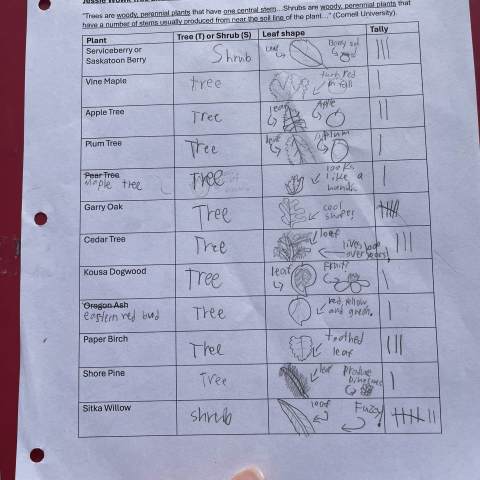 "Trees are woody, perennial plants that have one central stem...Shrubs are woody, perennial plants that
have a number of stems usually produced from near the soil line of the plant..." (Cornell University).
Plant Tree (T) or Shrub (S) Leaf shape Tally
Serviceberry or
Saskatoon Berry
Shrub
Leaf
Vine Maple
tree
turns red
in fall
Apple Tree
Tree
leaf
Apple
Plum Tree
Tree
leaf
plum
Pear Tree
Maple tree
Tree
looks
like a
hand
Garry Oak
Tree
cool
shapes
Cedar Tree
Tree
leaf
lives
over years
Kousa Dogwood
Tree
leaf
Fruit!
Oregon Ash
eastern red bud
Tree
red, yellow
and green.
Paper Birch
Tree
toothed
leaf
Shore Pine
Tree
leaf
Produce
Sitka Willow
shrub
leaf
Fuzzy